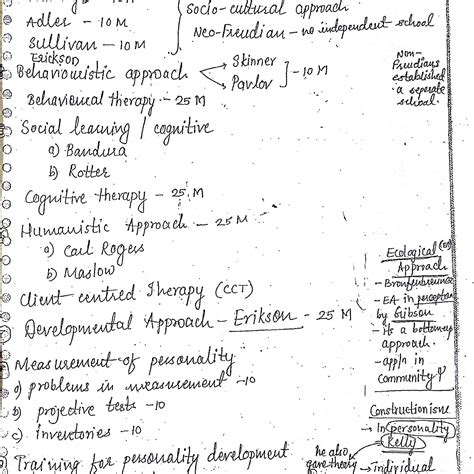 Adler - 10 M
Sullivan - 10 M
Erickson
Socio-cultural approach
Neo-Freudian - no independent school
Behaviouristic approach
Skinner
Pavlov
- 10 M
Non-
Freudians
established
a seperate
school.
Behavioural therapy - 25 M
Social learning / cognitive
a) Bandura
b) Rotter
Cognitive therapy - 25 M
Humanistic Approach - 25 M
a) Carl Rogers
b) Maslow
Client centred Therapy (CCT)
Developmental Approach - Erikson - 25 M
Ecological
Approach
- EA in perception
by Gibson
- Its a bottom up
approach.
- appln in
community
Measurement of personality
a) problems in measurement - 10
b) projective tests - 10
c) inventories - 10
Constructionism
- In personality
Kelly
Training for personality development
he also
gave theory
- individual